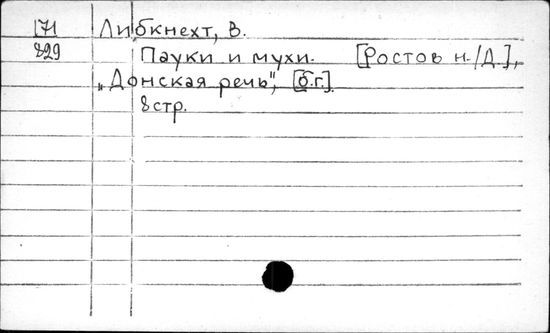 171 Либкнехт, В.
829 Пауки и мухи. [Ростов н./Д.],
„Донская речь", [б.г.].
8 стр.